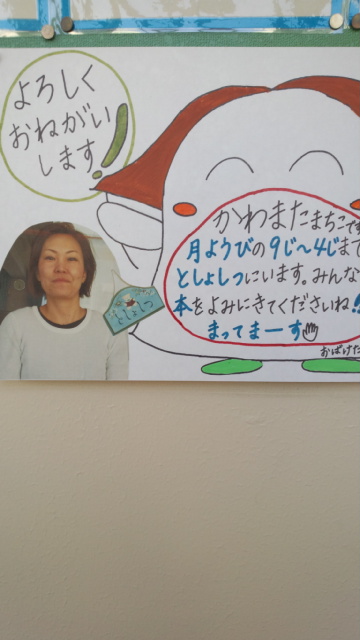 よろしく
おねがい
します!
かわまたまちこです
月ようびの9じ〜4じまで
としょしつにいます。みんな
本をよみにきてくださいね!!
まってまーす
おばけた
としょしつ